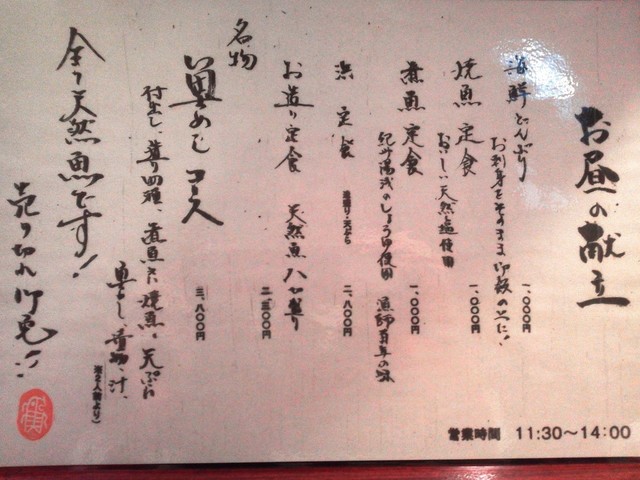 お昼の献立
海鮮どんぶり
お刺身をそのまま御飯の上に!
一、〇〇〇円
焼魚定食
おいしい天然塩使用
一、〇〇〇円
煮魚定食
紀州湯浅のしょうゆ使用 漁師百年の味
一、〇〇〇円
浜定食
造盛り・天ぷら
二、八〇〇円
お造り定食
天然魚八種盛り
二、三〇〇円
名物
奥めしコース
三、八〇〇円
付出し、造り四種、煮魚又は焼魚、天ぷら
奥めし、香物、汁、
※2人前より)
全て天然魚です!
売り切れ御免!!
営業時間 11:30〜14:00